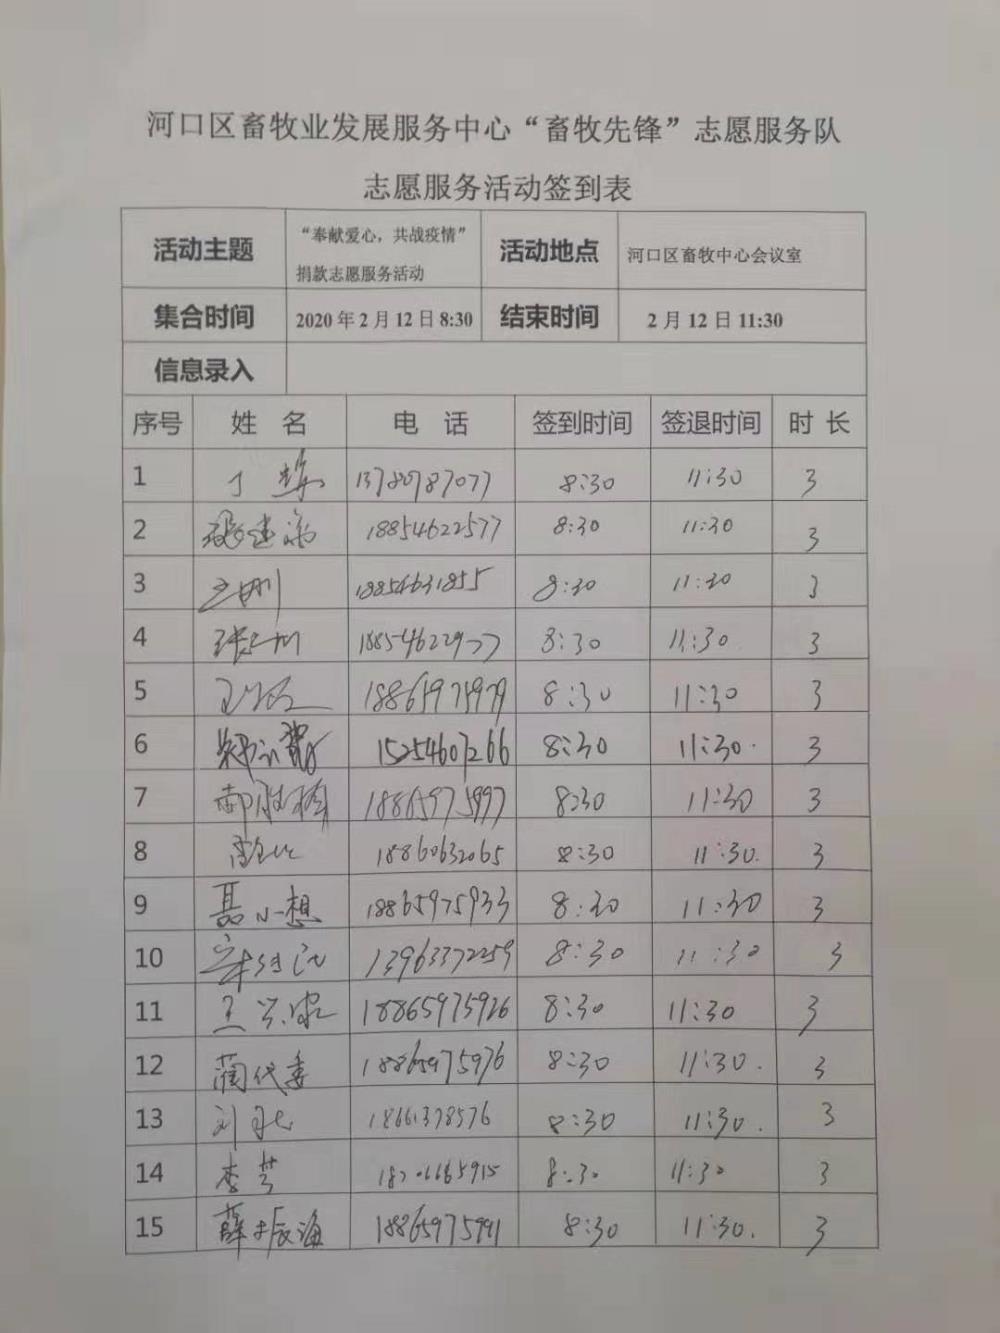 河口区畜牧业发展服务中心“畜牧先锋”志愿服务队
志愿服务活动签到表
活动主题 “奉献爱心，共战疫情” 活动地点 河口区畜牧中心会议室
捐款志愿服务活动
集合时间 2020年2月12日8:30 结束时间 2月12日11:30
信息录入
序号 姓 名 电 话 签到时间 签退时间 时 长
1 丁 13780787077 8:30 11:30 3
2 18854622577 8:30 11:30 3
3 王刚 18854631855 8:30 11:30 3
4 18854622977 8:30 11:30 3
5 18865975979 8:30 11:30 3
6 15254607266 8:30 11:30 3
7 郝胜楠 18865975997 8:30 11:30 3
8 18860632065 8:30 11:30 3
9 聂小想 18865975933 8:30 11:30 3
10 13963372259 8:30 11:30 3
11 王兴家 18865975926 8:30 11:30 3
12 蔺代委 18865975976 8:30 11:30 3
13 刘 18661378576 8:30 11:30 3
14 李芳 8:30 11:30 3
15 薛振海 18865975991 8:30 11:30 3